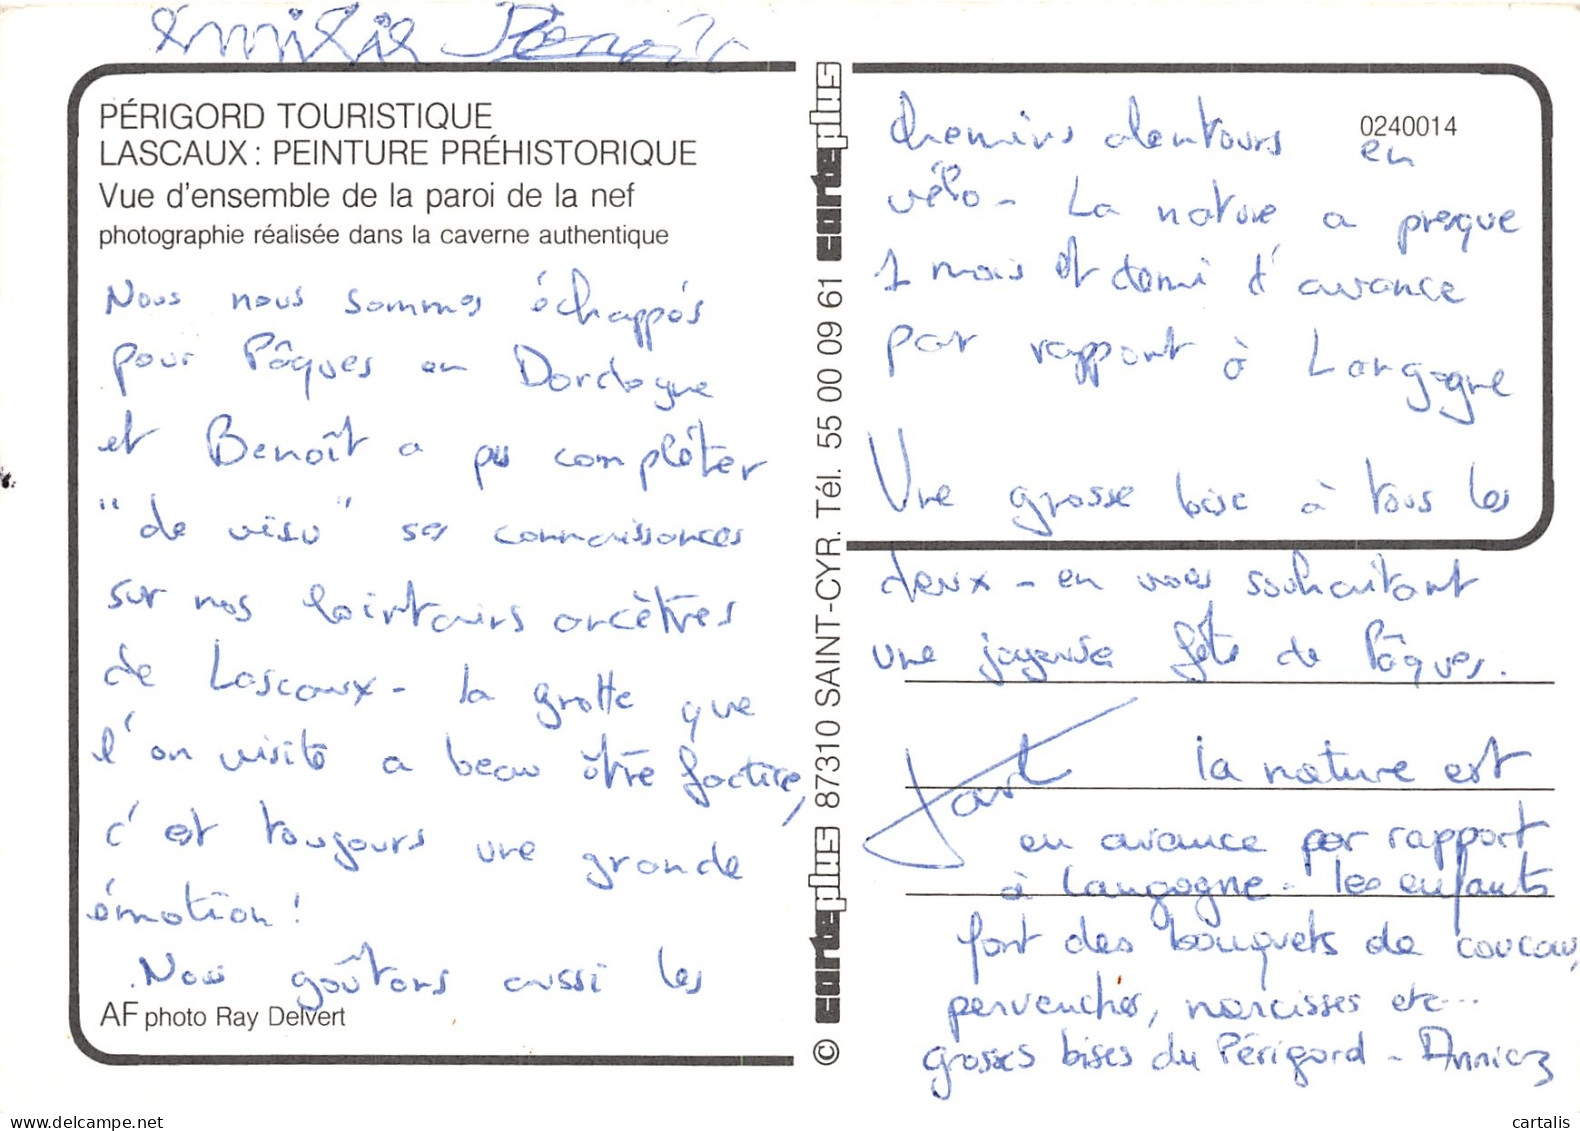 emilie Benoît
PÉRIGORD TOURISTIQUE
LASCAUX : PEINTURE PRÉHISTORIQUE
Vue d'ensemble de la paroi de la nef
photographie réalisée dans la caverne authentique
Nous nous sommes échappés
pour Pâques en Dordogne
et Benoît a pu compléter
"de visu" ses connaissances
sur nos lointains ancêtres
de Lascaux - la grotte que
l'on visite a beau être factice,
c'est toujours une grande
émotion !
Nous goûtons aussi les
AF photo Ray Delvert
© carteplus 87310 SAINT-CYR. Tél. 55 00 09 61 carteplus
0240014
chemins alentours en
vélo - La nature a presque
1 mois et demi d'avance
par rapport à Langogne
Une grosse bise à tous les
deux - en vous souhaitant
une joyeuse fête de Pâques.
la nature est
en avance par rapport
à Langogne - les enfants
font des bouquets de coucou,
pervenches, narcisses etc...
grosses bises du Périgord - Annick
www.delcampe.net
cartalis